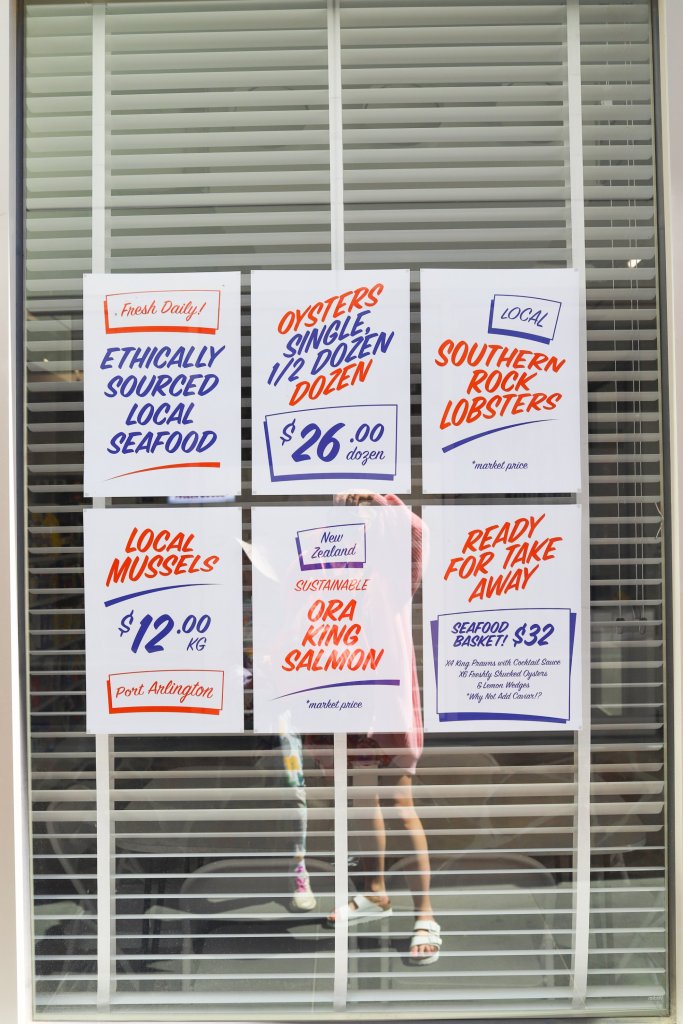 Fresh Daily!
ETHICALLY
SOURCED
LOCAL
SEAFOOD
OYSTERS
SINGLE,
1/2 DOZEN
DOZEN
$26.00
dozen
LOCAL
SOUTHERN
ROCK
LOBSTERS
*market price
LOCAL
MUSSELS
$12.00
KG
Port Arlington
New
Zealand
SUSTAINABLE
ORA
KING
SALMON
*market price
READY
FOR TAKE
AWAY
SEAFOOD
BASKET! $32
X4 King Prawns with Cocktail Sauce
X6 Freshly Shucked Oysters
& Lemon Wedges
*Why Not Add Caviar!?